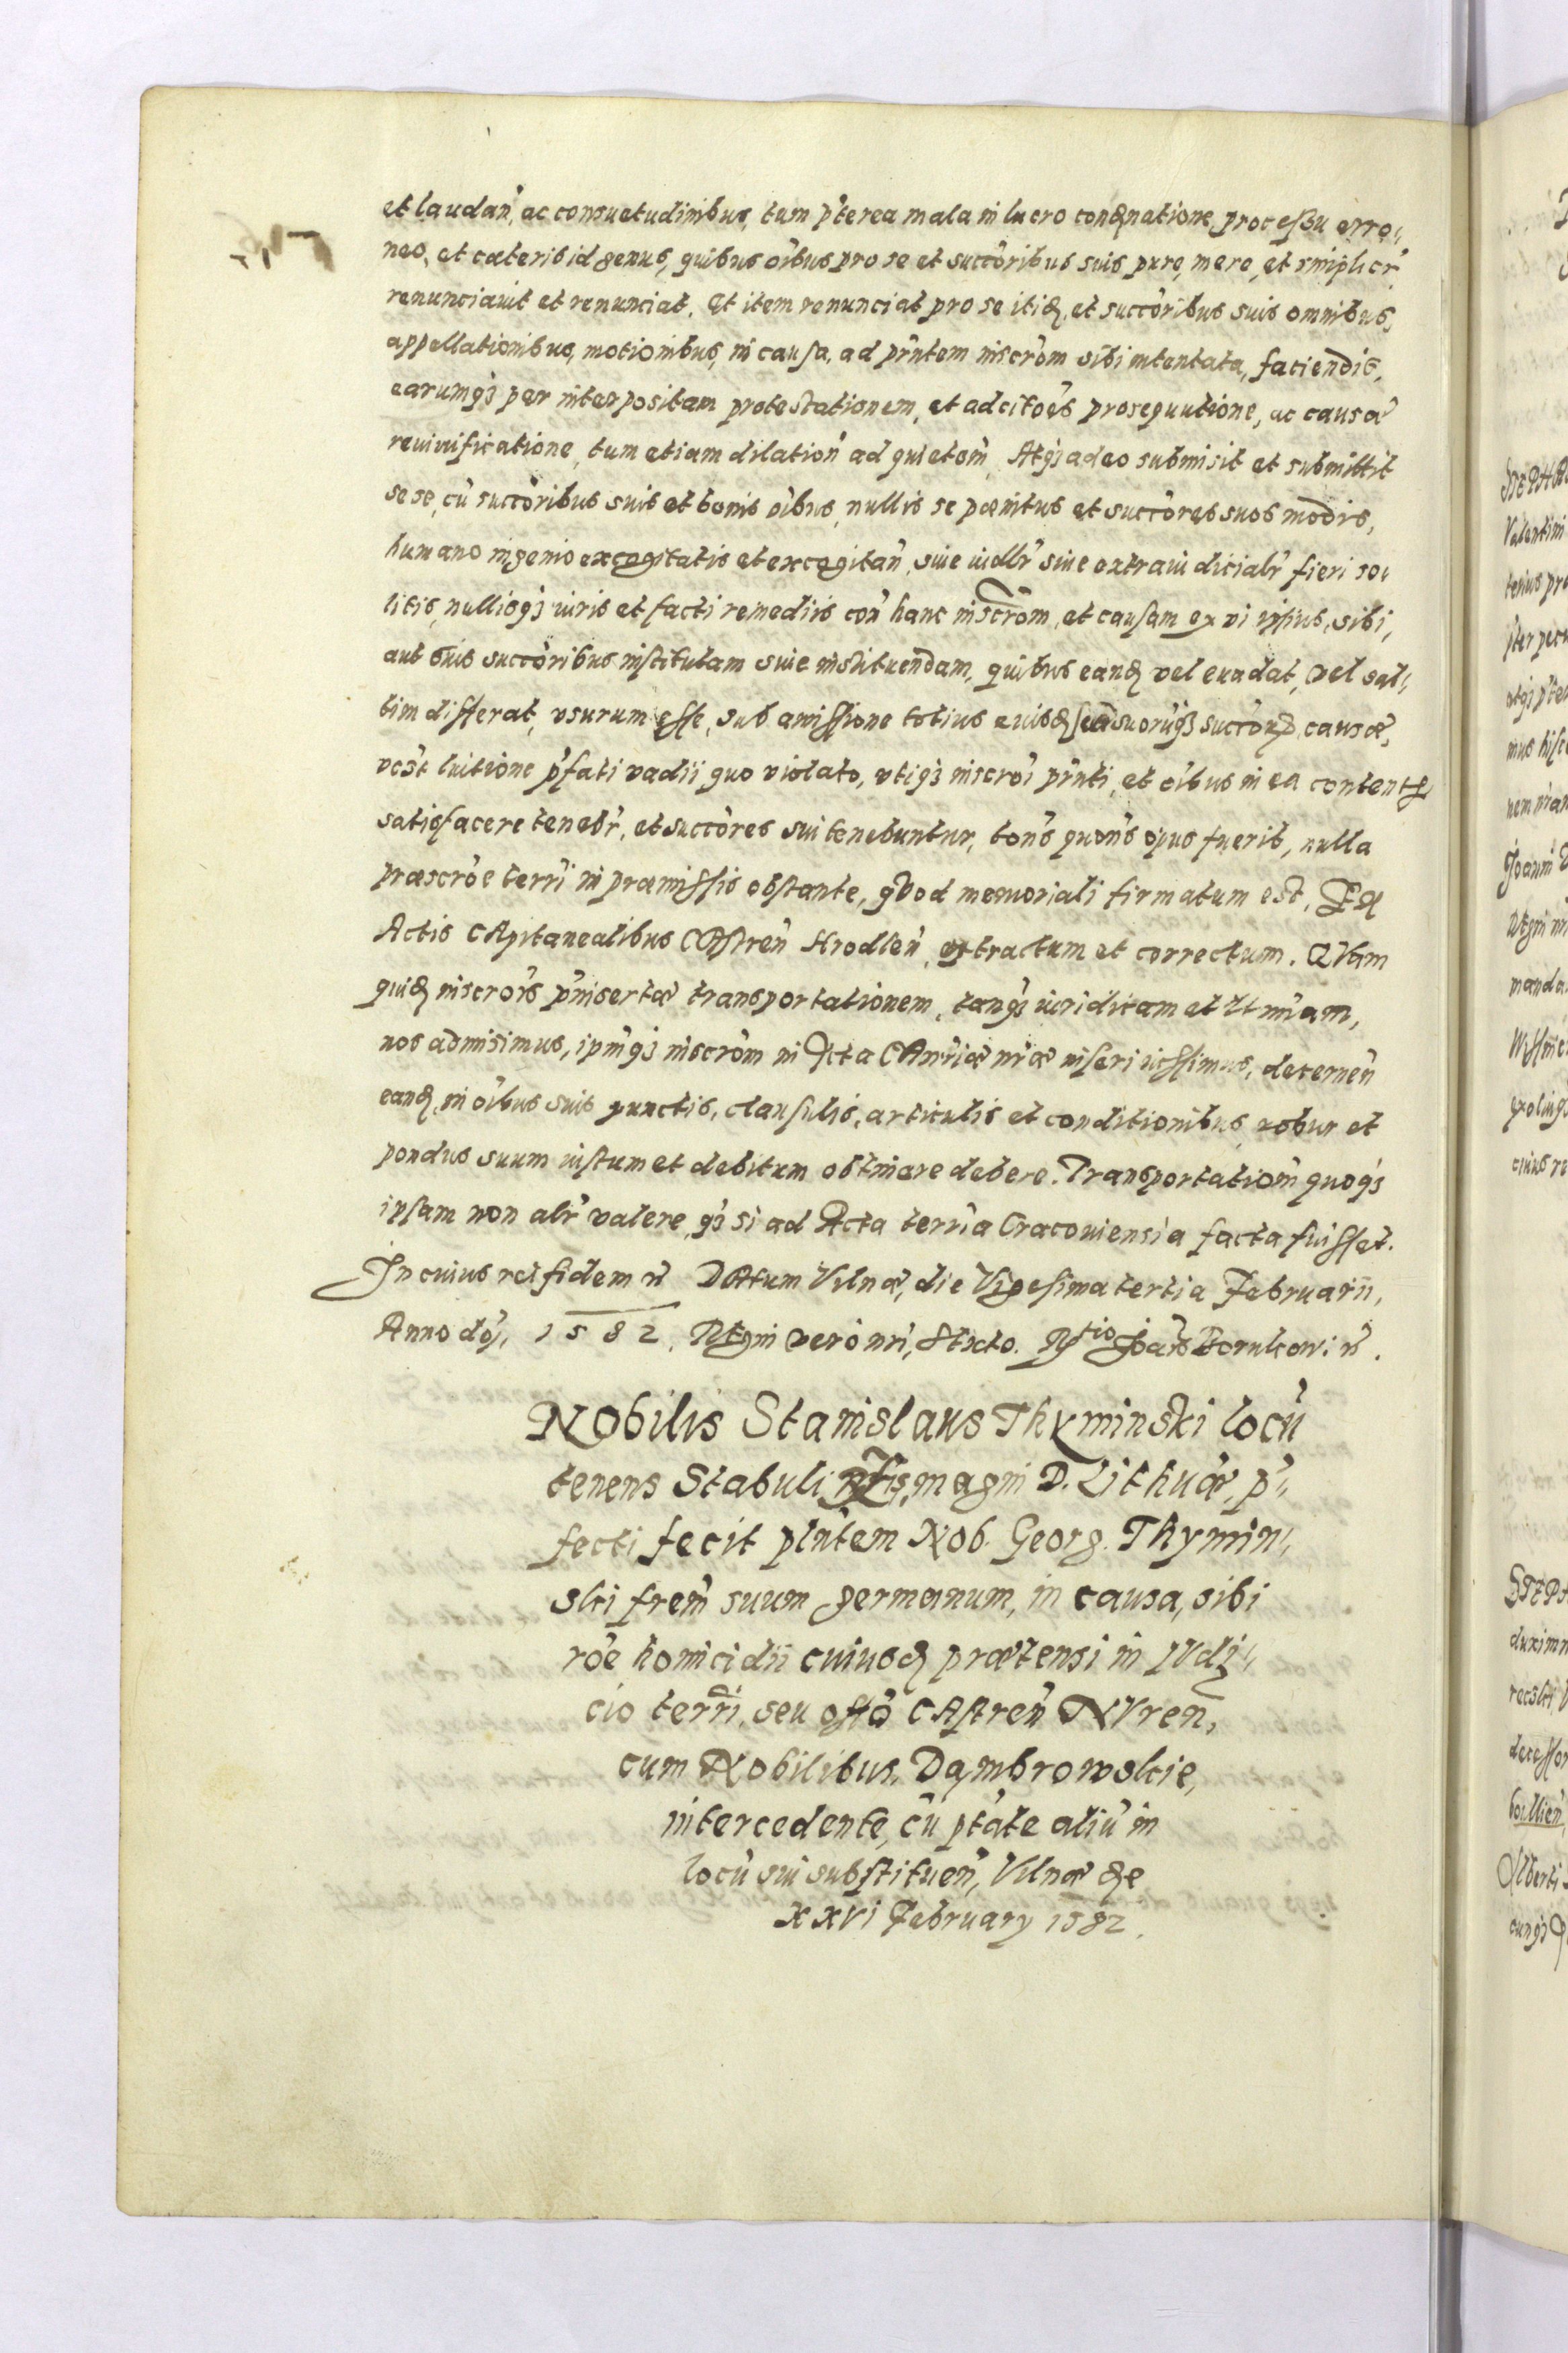 et laudan̄, ac consuetudinibus, tum p̄terea mala in lucro condēnatione, processu erro⸗
neo, et cæteris id genus, quibus oībus pro se et succōribus suis pure, mere, et simplicr̄
renunciauit et renunciat. Et item renunciat pro se itid. et succōribus suis omnibus,
appellationibus, motionibus, in causa, ad pn̄tem inscrōm sibi intentata, faciendis,
earumq3 per interpositam protestationem, et ad citōes prosequutione, ac causæ
reuiuificatione, tum etiam dilation̄ ad quietem̄. Atq3 adeo submisit et submittit
se se, cū succōribus suis et bonis oībus, nullis se pœnitus et succōres suos modis,
humano ingenio excogitatis et excogitan̄, siue iudlr̄ siue extraiudicialr̄ fieri so⸗
litis, nullisq3 iuris et facti remediis con̄ hanc inscrōm, et causam ex vi ipsius, sibi,
aut suis succōribus institutam siue instituendam, quibus eand. vel euadat, vel sal⸗
tim differat, vsurum esse, sub amissione totius euisd. suorūq3 succōrum, causæ,
vest luitione p̄fati vadii, quo violato, vtiq3 inscrōi pn̄ti, et oībus in ea contentis
satisfacere tenebr̄, et succōres sui tenebuntur, tōns quōns opus fuerit, nulla
præscrōe terrī in præmissis obstante, qVod memoriali firmatum est, Ex
Actis CApitanealibus CAstren̄ Hrodlen̄, extractum et correctum. QVam
quid. inscrōis p̄insertæ transportationem, tanq3 iuridicam et ltmīam,
nos admisimus, ipmq3 inscrōm in Acta CAnr̄iæ nr̄æ inseri iussimus, decernen̄
eand. in oībus suis punctis, clausulis, articulis et conditionibus robur et
pondus suum iustum et debitum obtinere debere. Transportationem̄ quoq3
ipsam non alr̄ valere, q3 si ad Acta terr̄ia Cracouiensia facta fuisset.
In cuius rei fidem etc̄ DAtum Vilnæ, die Vigesima tertia Februarii,
Anno dn̄i, 1582. Regni vero nr̄i, Sexto. Rtio Joān̄is Borukow: etc̄.
NObilis Stanislaus Thyminski locū
tenens Stabuli magni D. Lithuæ, p̄⸗
fecti fecit plntem Nob. Georg. Thymin⸗
ski frem̄ suum germanum, in causa, sibi
rōe homicidii cuiusd. prætensi in IVdi⸗
cio terrī, seu offō CAstren̄ NVren̄,
cum Nobilibus, Dąmbrowskie,
intercedente, cū ptāte aliū in
locū sui substituen̄, Vilnæ die
XXVI February 1582.